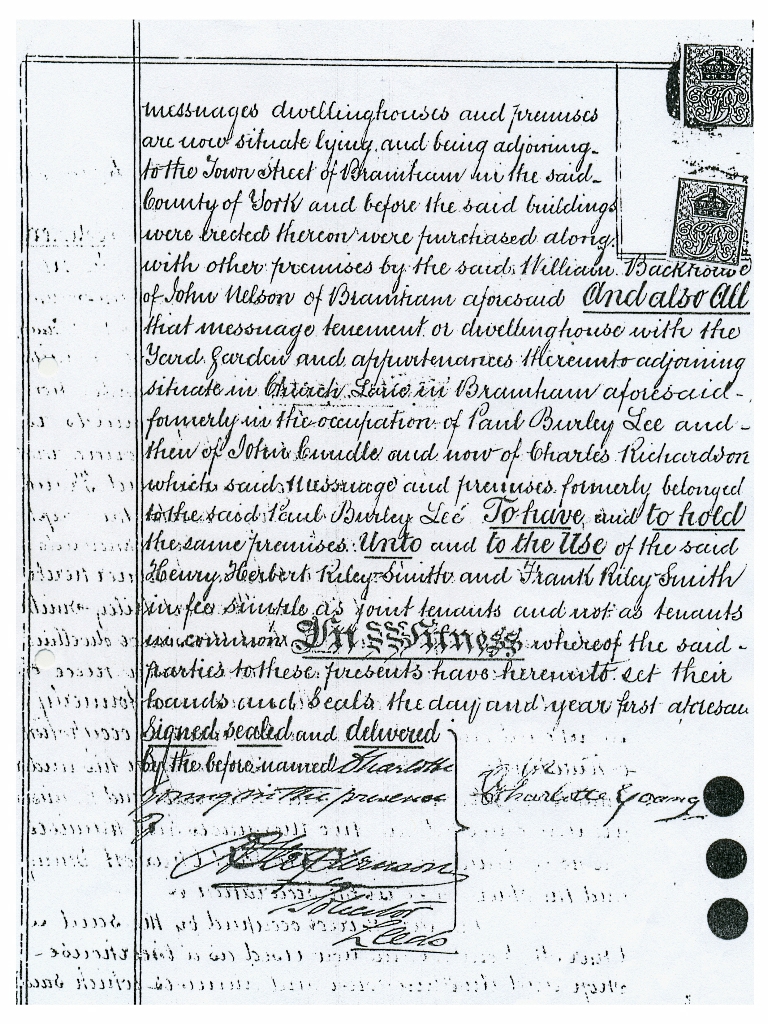 messuages dwellinghouses and premises
are now situate lying and being adjoining
to the Town Street of Bramham in the said
County of York and before the said buildings
were erected thereon were purchased along
with other premises by the said William Backhouse
of John Nelson of Bramham aforesaid And also All
that messuage tenement or dwellinghouse with the
Yard Garden and appurtenances thereunto adjoining
situate in Church Lane in Bramham aforesaid
formerly in the occupation of Paul Burley Lee and
then of John Cundle and now of Charles Richardson
which said Messuage and premises formerly belonged
to the said Paul Burley Lee To have and to hold
the same premises Unto and to the Use of the said
Henry Herbert Riley-Smith and Frank Riley Smith
in fee simple as joint tenants and not as tenants
in common In Witness whereof the said
parties to these presents have hereunto set their
hands and Seals the day and year first aforesaid
Signed sealed and delivered
by the before named Charlotte
Young in the presence
of
Charlotte Young
Solicitor
Leeds